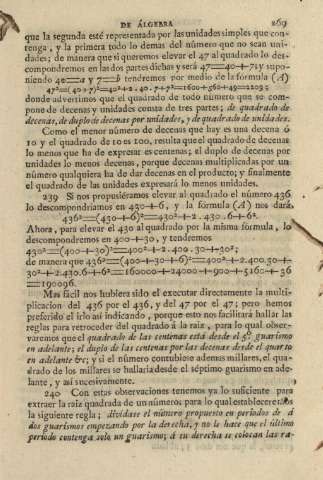 DE ÁLGEBRA 269
que la segunda esté representada por las unidades simples que con-
tenga, y la primera todo lo demas del número que no sean uni-
dades; de manera que si queremos elevar el 47 al quadrado lo des-
compondremos en las dos partes dichas y será 47=40+7; y supo-
niendo 40=a y 7=b tendremos por medio de la formula (A)
47²=(40+7)²=40²+2.40.7+7²=1600+560+49=2209;
donde advertimos que el quadrado de todo número que se com-
pone de decenas y unidades consta de tres partes; de quadrado de
decenas, de duplo de decenas por unidades, y de quadrado de unidades.
Como el menor número de decenas que hay es una decena ó
10 y el quadrado de 10 es 100, resulta que el quadrado de decenas
lo menos que ha de expresar es centenas; el duplo de decenas por
unidades lo menos decenas, porque decenas multiplicadas por un
número qualquiera ha de dar decenas en el producto; y finalmente
el quadrado de las unidades expresará lo menos unidades.
239 Si nos propusiéramos elevar al quadrado el número 436
lo descompondriamos en 430+6, y la formula (A) nos dará
436²=(430+6)²=430²+2.430.6+6².
Ahora, para elevar el 430 al quadrado por la misma formula, lo
descompondremos en 400+30, y tendremos
430²=(400+30)²=400²+2.400.30+30²;
de manera que 436²=(400+30+6)²=400²+2.400.30+
30²+2.430.6+6²=160000+24000+900+5160+36
=190096.
Mas fácil nos hubiera sido el executar directamente la multi-
plicacion del 436 por el 436, y del 47 por el 47; pero hemos
preferido el irlo así indicando, porque esto nos facilitará hallar las
reglas para retroceder del quadrado á la raiz, para lo qual obser-
varemos que el quadrado de las centenas está desde el 5º guarismo
en adelante; el duplo de las centenas por las decenas desde el quarto
en adelante &c; y si el número contubiese ademas millares, el qua-
drado de los millares se hallaria desde el séptimo guarismo en ade-
lante, y así sucesivamente.
240 Con estas observaciones tenemos ya lo suficiente para
extraer la raiz quadrada de un números para lo qual estableceremos
la siguiente regla; divídase el número propuesto en periodos de á
dos guarismos empezando por la derecha, y no le hace que el último
periodo contenga solo un guarismo; á su derecha se colocan las ra-